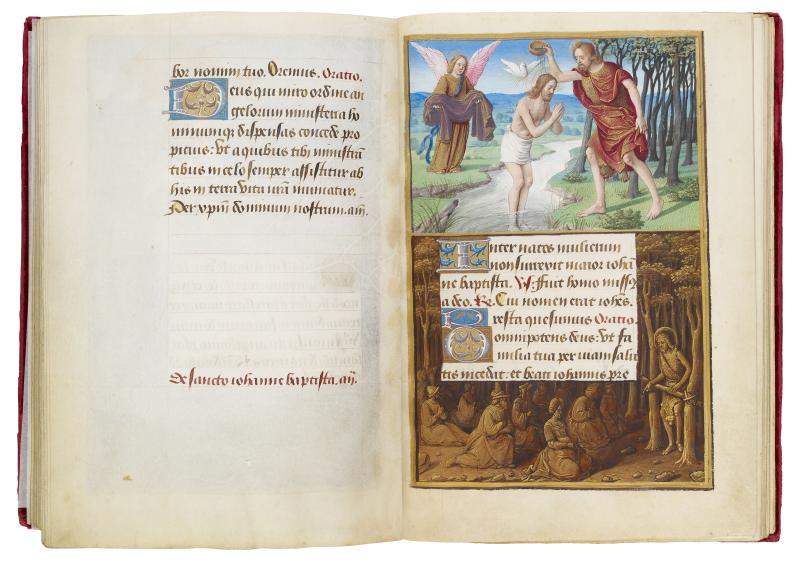 bor nomini tuo. Oremus. Oratio.
Deus qui miro ordine an
gelorum ministeria ho
minumq; dispensas concede pro
picius: ut a quibus tibi ministrā
tibus in celo semper assistitur ab
his in terra vita nr̄a muniatur.
Per xp̄m dominum nostrum. am̄.
De sancto iohanne baptista. an̄.
Inter natos mulierum
non surrexit maior iohā
ne baptista. V/s. Fuit homo miss9
a deo. R/. Cui nomen erat iohēs.
Presta quesumus Oratio.
omnipotens deus: ut fa
milia tua per viam salu
tis incedat: et beati iohannis pre